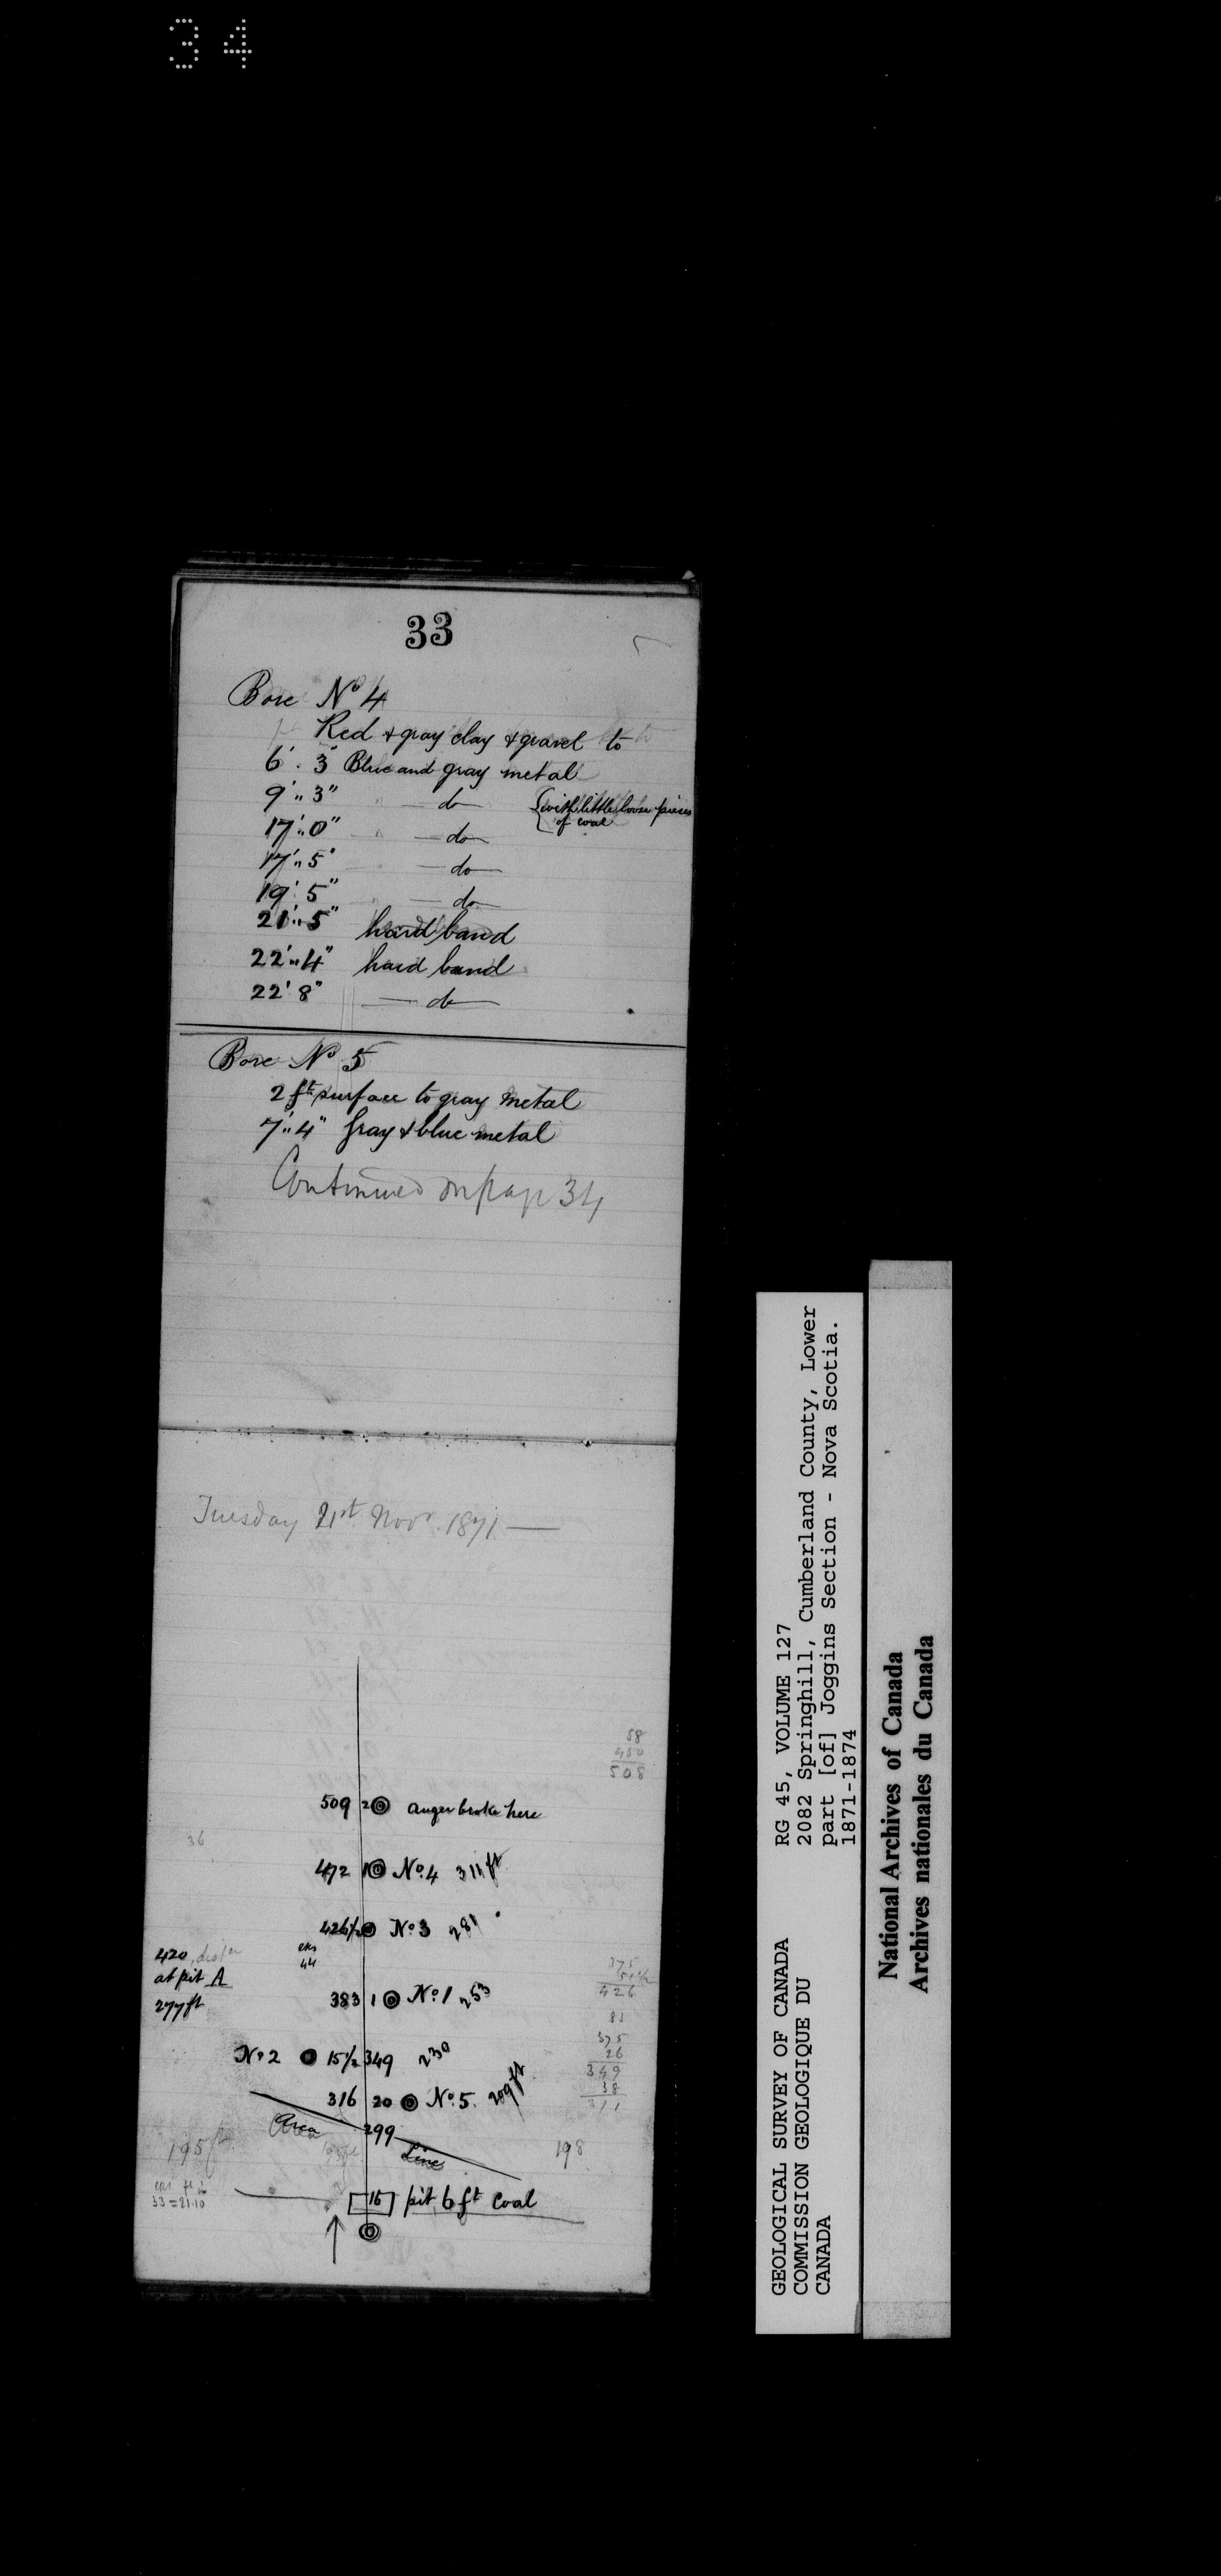 34
33
Bore No 4
Red & gray clay & gravel to
6' . 3" Blue and gray metal
9' " 3" — do — {with little loose pieces of coal
17' " 0" — do —
17' " 5" — do —
19' 5" — do —
21' " 5" hard band
22' " 4" hard band
22' 8" — do —
Bore No 5
2 ft surface to gray metal
7' " 4" Gray & blue metal
Continued on page 34
Tuesday 21st Novr. 1871 —
58
450
508
509 2 auger broke here
36
472 No. 4 311 ft
426½ No 3 281
420
at pit A
277 ft
44
375
426
383 1 No. 1 253
375
26
349
38
311
No. 2 15½ 349 230
316 20 No. 5. 209 ft
Area 299 Line
195
198
33 = 21.10
16 pit 6 ft coal
GEOLOGICAL SURVEY OF CANADA
COMMISSION GEOLOGIQUE DU
CANADA
RG 45, VOLUME 127
2082 Springhill, Cumberland County, Lower
part [of] Joggins Section - Nova Scotia.
1871-1874
National Archives of Canada
Archives nationales du Canada